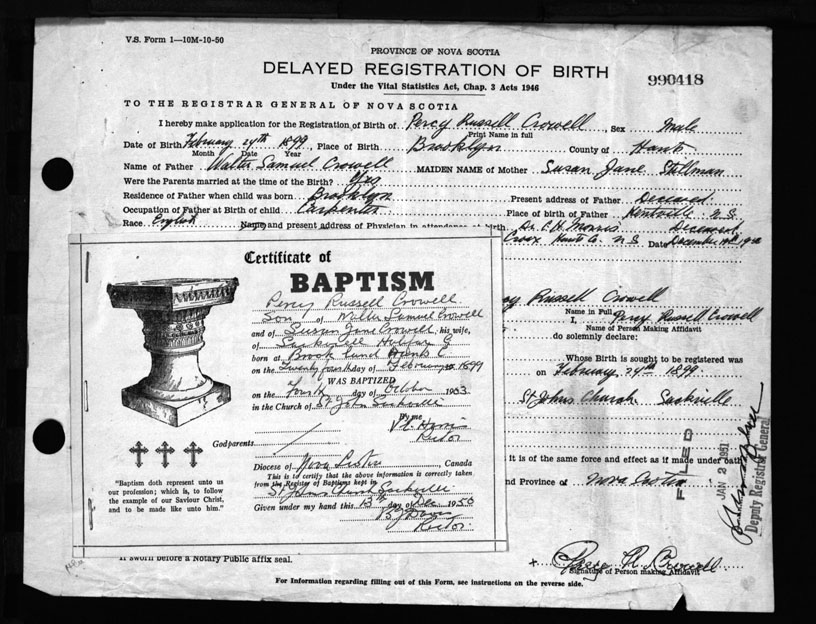 V.S. Form 1—10M-10-50
PROVINCE OF NOVA SCOTIA
DELAYED REGISTRATION OF BIRTH
990418
Under the Vital Statistics Act, Chap. 3 Acts 1946
TO THE REGISTRAR GENERAL OF NOVA SCOTIA
I hereby make application for the Registration of Birth of Percy Russell Crowell, Sex Male
Print Name in full
Date of Birth February 24th 1899, Place of Birth Brooklyn County of Hants
Month Date Year
Name of Father Walter Samuel Crowell MAIDEN NAME of Mother Susan Jane Stillman
Were the Parents married at the time of the Birth? Yes
Residence of Father when child was born Brooklyn Present address of Father Deceased
Occupation of Father at Birth of child Carpenter Place of birth of Father Kentville N.S.
Race English Name and present address of Physician in attendance at birth Dr. C. H. Morris Deceased
Croix Hants Co. N.S. Date December
Certificate of
BAPTISM
Percy Russell Crowell
Son of Walter Samuel Crowell
and of Susan Jane Crowell, his wife,
of Sackville Halifax C
born at Hants C
on the Twenty fourth day of February 1899
WAS BAPTIZED
on the Fourth day of October 1933
in the Church of St John Sackville
By me
Rector
Godparents
Diocese of Nova Scotia Canada
This is to certify that the above information is correctly taken
from the Register of Baptisms kept in
Sackville
Given under my hand this 13th day of Dec 1950
Rector
"Baptism doth represent unto us
our profession; which is, to follow
the example of our Saviour Christ,
and to be made like unto him."
Russell Crowell
Name in Full
I, Percy Russell Crowell
Name of Person Making Affidavit
do solemnly declare:
Whose Birth is sought to be registered was
on February 24th 1899.
St Johns Church Sackville
It is of the same force and effect as if made under oath
nd Province of Nova Scotia
FILED
JAN 2 1951
Deputy Registrar General
If sworn before a Notary Public affix seal.
+ Crowell
Signature of Person making Affidavit
For Information regarding filling out of this Form, see instructions on the reverse side.